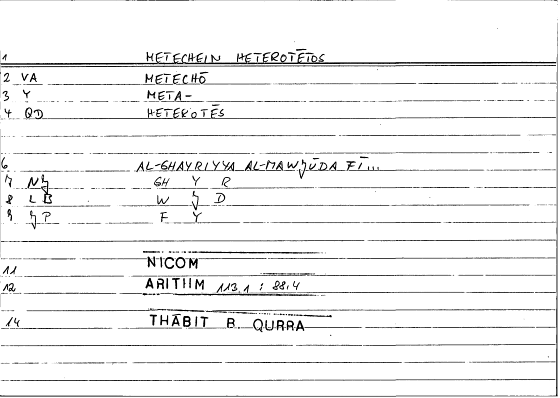 1 METECHEIN HETEROTĒTOS
2 VA METECHŌ
3 Y META-
4 QD HETEROTĒS
6 AL-GHAYRIYYA AL-MAWJŪDA FĪ...
7 NJ GH Y R
8 LB W J D
9 JP F Y
11 NICOM
12 ARITHM 113,1 : 88,4
14 THĀBIT B. QURRA